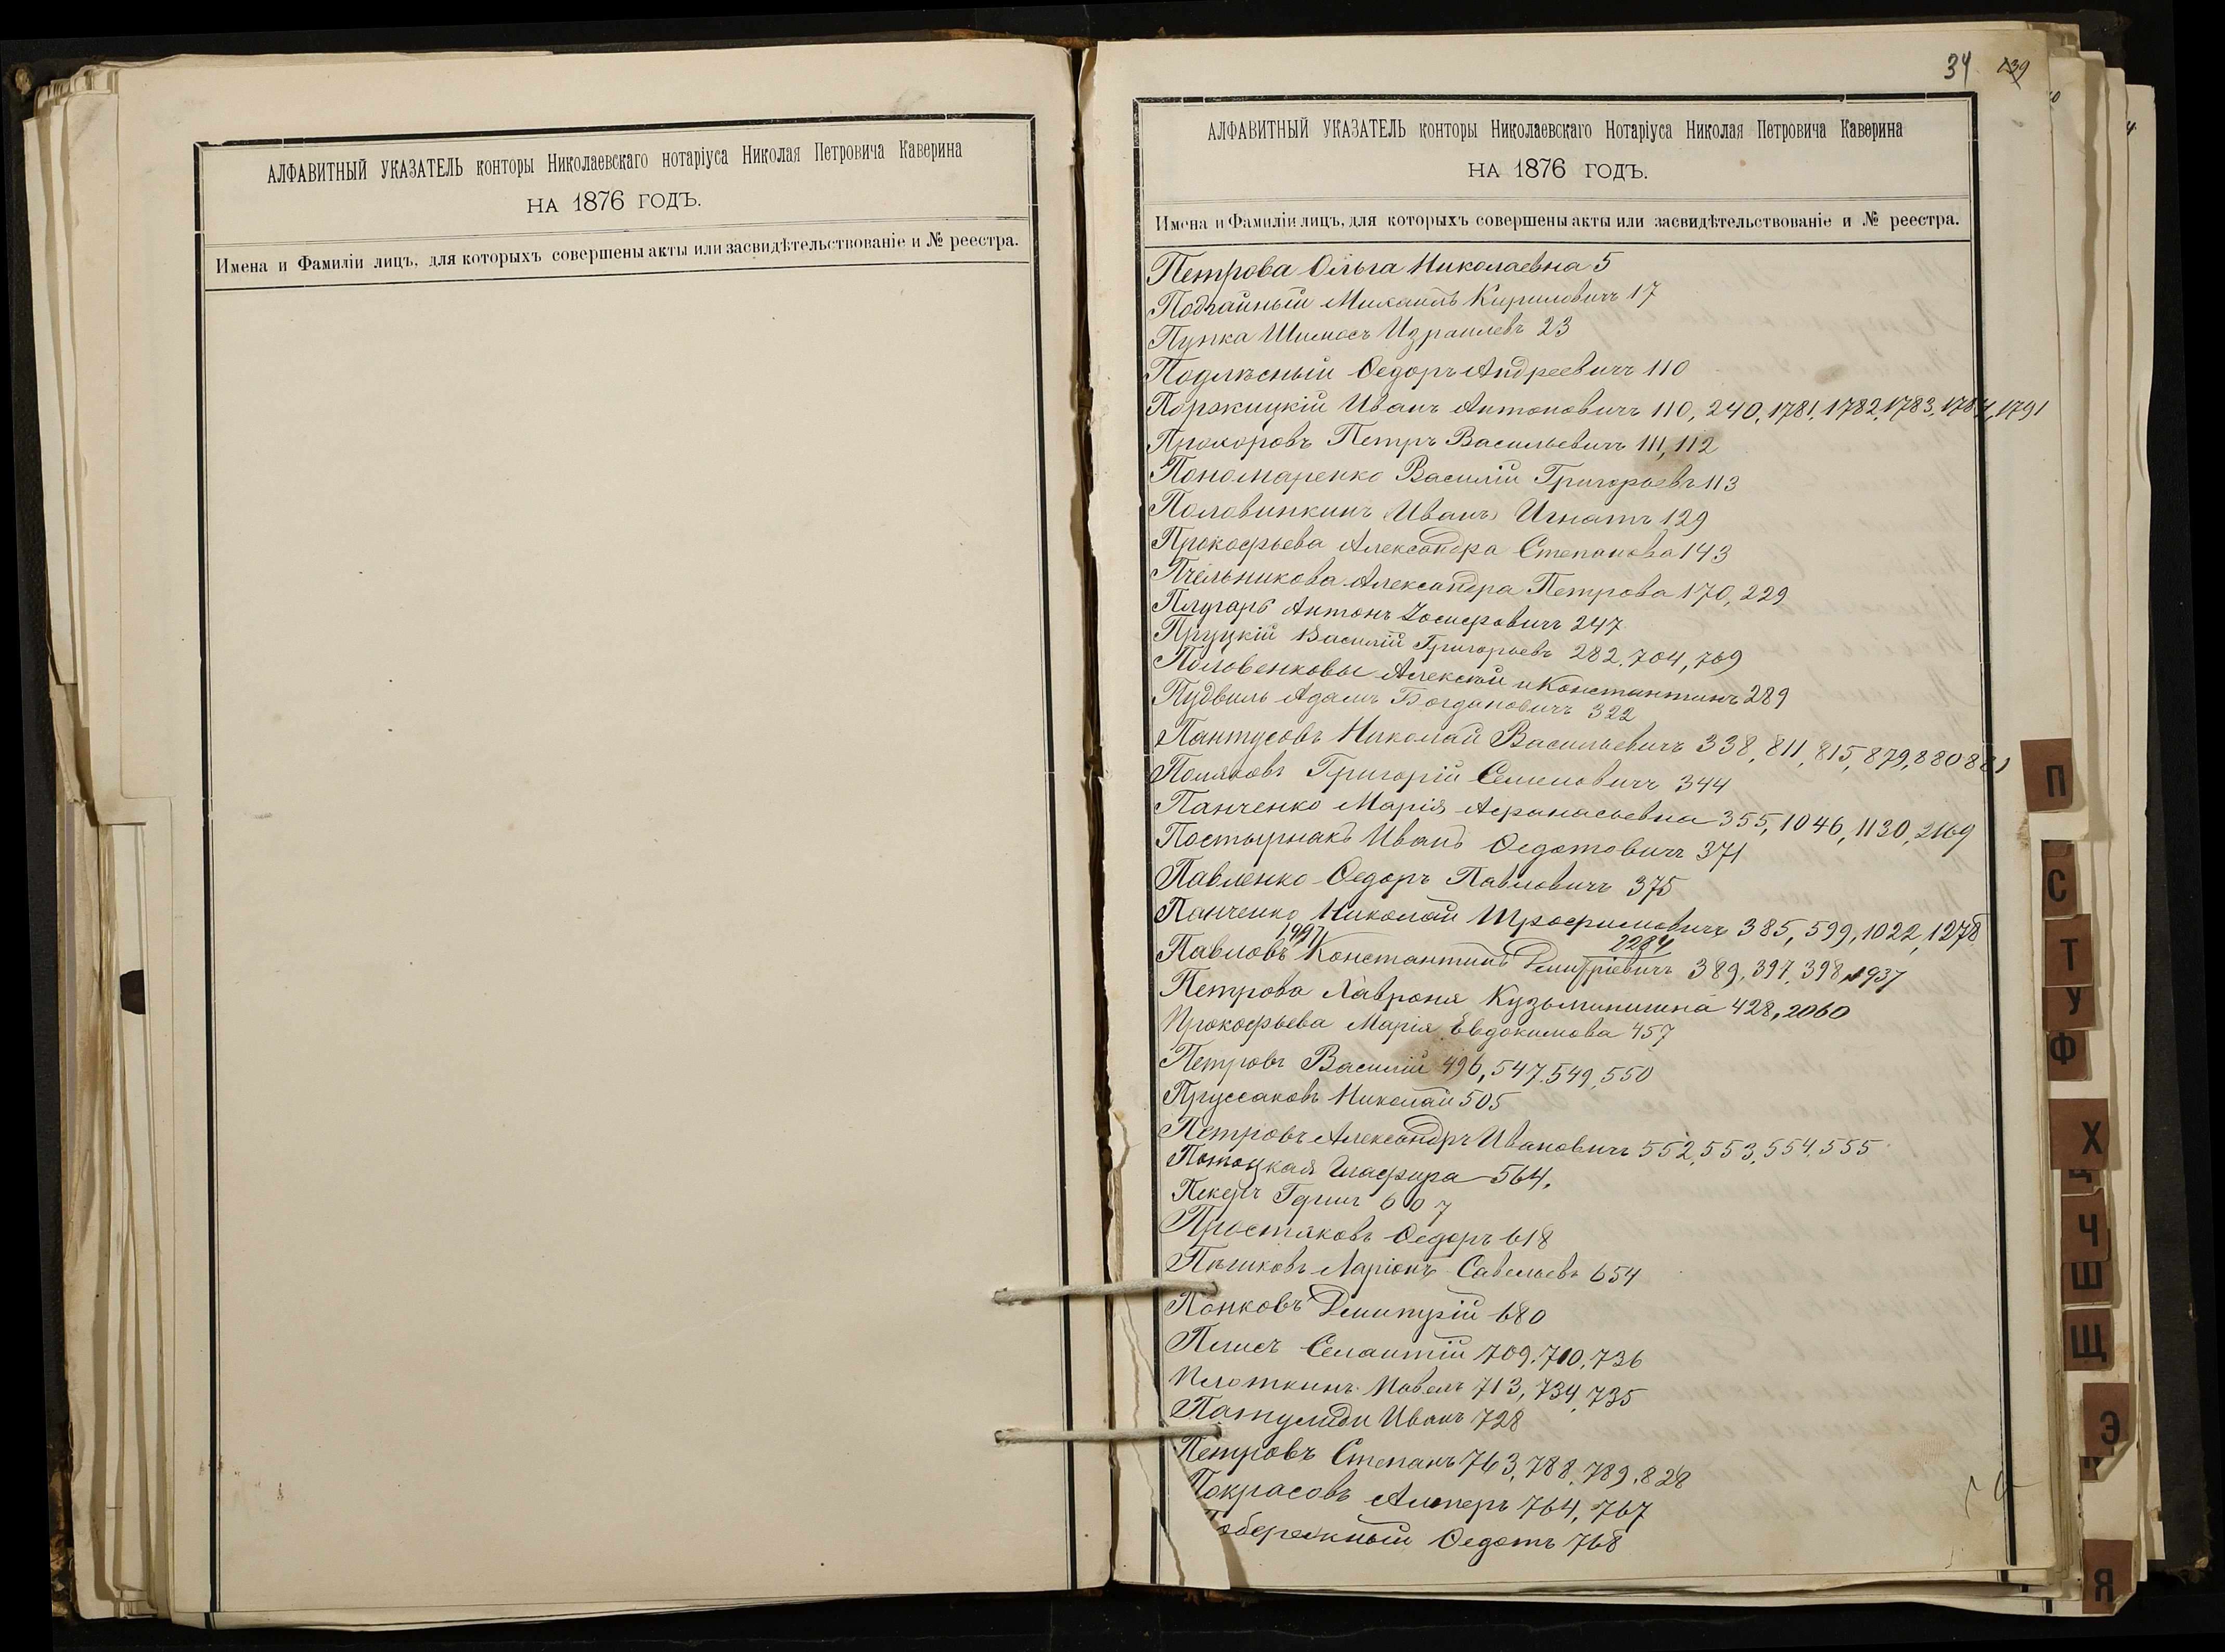 АЛФАВИТНЫЙ УКАЗАТЕЛЬ конторы Николаевскаго нотаріуса Николая Петровича Каверина
НА 1876 ГОДЪ.
Имена и Фамиліи лицъ, для которыхъ совершены акты или засвидѣтельствованіе и № реестра.
34 139
АЛФАВИТНЫЙ УКАЗАТЕЛЬ конторы Николаевскаго Нотаріуса Николая Петровича Каверина
НА 1876 ГОДЪ.
Имена и Фамиліи лицъ, для которыхъ совершены акты или засвидѣтельствованіе и № реестра.
Петрова Ольга Николаевна 5
Подгайный Михаилъ Кириловичъ 17
Пупка Израилевъ 23
Подлѣсный Ѳедоръ Андреевичъ 110
Поржицкій Иванъ Антоновичъ 110, 240, 1781, 1782, 1783, 1784, 1791
Прохоровъ Петръ Васильевичъ 111, 112
Пономаренко Василій Григорьевъ 113
Половинкинъ Иванъ Игнатъ 129
Прокофьева Александра Степанова 143
Пчельникова Александра Петрова 170, 229
Плугарь Антонъ Іосифовичъ 247
Пруцкій Василій Григорьевъ 282, 704, 769
Половенковы Алексѣй и Константинъ 289
Пудвиль Адамъ Богдановичъ 322
Пантусовъ Николай Васильевичъ 338, 811, 815, 879, 880 881
Поляковъ Григорій Семеновичъ 344
Панченко Марія Афанасьевна 355, 1046, 1130, 2169
Постырнакъ Иванъ Ѳедотовичъ 371
Павленко Ѳедоръ Павловичъ 375
Панченко Николай Трофимовичъ 385, 599, 1022, 1278
1997 2284
Павловъ Константинъ Дмитріевичъ 389, 397, 398, 1937
Петрова Кузьминишна 428, 2060
Прокофьева Марія Евдокимова 457
Петровъ Василій 496, 547, 549, 550
Пруссаковъ Николай 505
Петровъ Александръ Ивановичъ 552, 553, 554, 555
Потоцкая Глафира 564.
Пекеръ 607
Простяковъ Ѳедоръ 618
Пѣшковъ Ларіонъ Савельевъ 654
Попковъ Дмитрій 680
709, 710, 736
Плоткинъ Павелъ 713, 734, 735
Патулиди Иванъ 728
Петровъ Степанъ 763, 788, 789, 828
Покрасовъ Алтеръ 764, 767
обережный Ѳедотъ 768
П
С
Т
У
Ф
Х
Ц
Ч
Ш
Щ
Э
Я